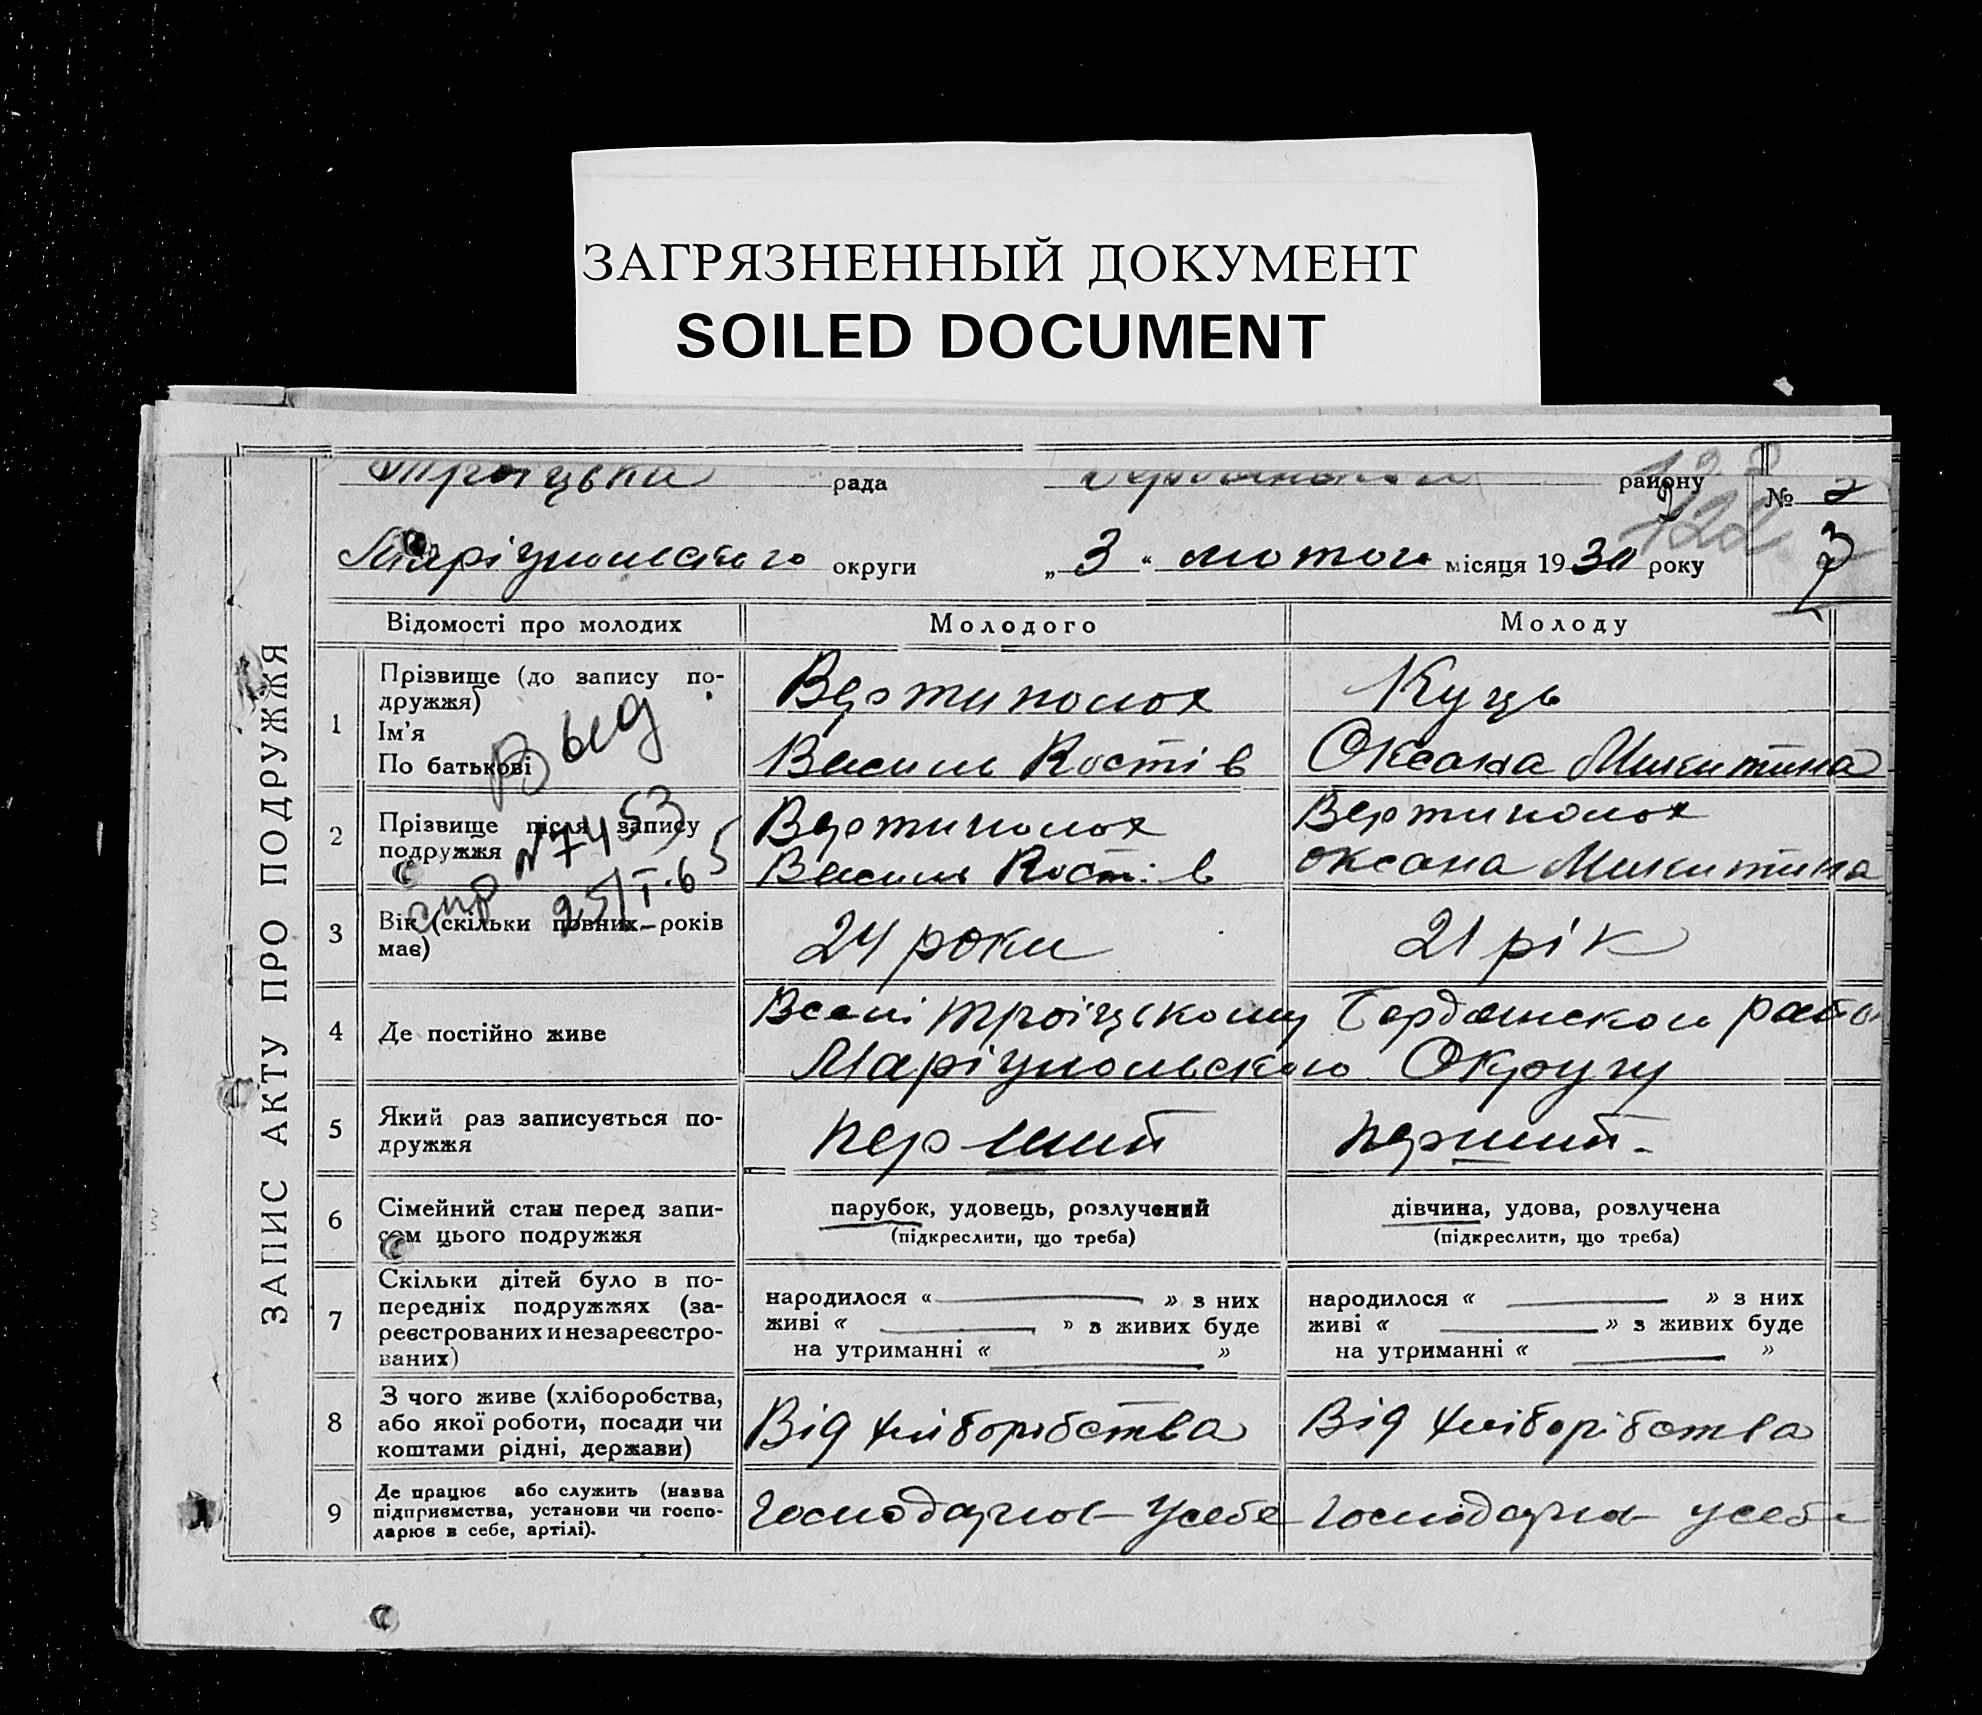 ЗАГРЯЗНЕННЫЙ ДОКУМЕНТ
SOILED DOCUMENT
Троіцька рада району № 2
Маріупольского округи „3“ лютого місяця 1930 року
122
ЗАПИС АКТУ ПРО ПОДРУЖЖЯ
Відомості про молодих Молодого Молоду
1 Прізвище (до запису по-
дружжя)
Ім'я
По батькові
Вертиполох
Василь Костів
Куць
Оксана Микитина
Выд.
2 Прізвище після запису
подружжя
Вертиполох
Василь Костів
Вертиполох
Оксана Микитина
спр N 7453
25/I.65
3 Вік (скільки повних років
має)
24 роки
21 рік
4 Де постійно живе
В селі Троіцькому Бердянского
Маріупольского Округу
5 Який раз записується по-
дружжя
перший
перший
6 Сімейний стан перед запи-
сом цього подружжя
парубок, удовець, розлучений
(підкреслити, що треба)
дівчина, удова, розлучена
(підкреслити, що треба)
7 Скільки дітей було в по-
передніх подружжях (за-
реєстрованих и незареєстро-
ваних)
народилося « » з них
живі « » з живих буде
на утриманні « »
народилося « » з них
живі « » з живих буде
на утриманні « »
8 З чого живе (хліборобства,
або якої роботи, посади чи
коштами рідні, держави)
Від хліборобства
Від хліборобства
9 Де працює або служить (назва
підприємства, установи чи госпо-
дарює в себе, артілі).
Господарює усебе
господарює усебе